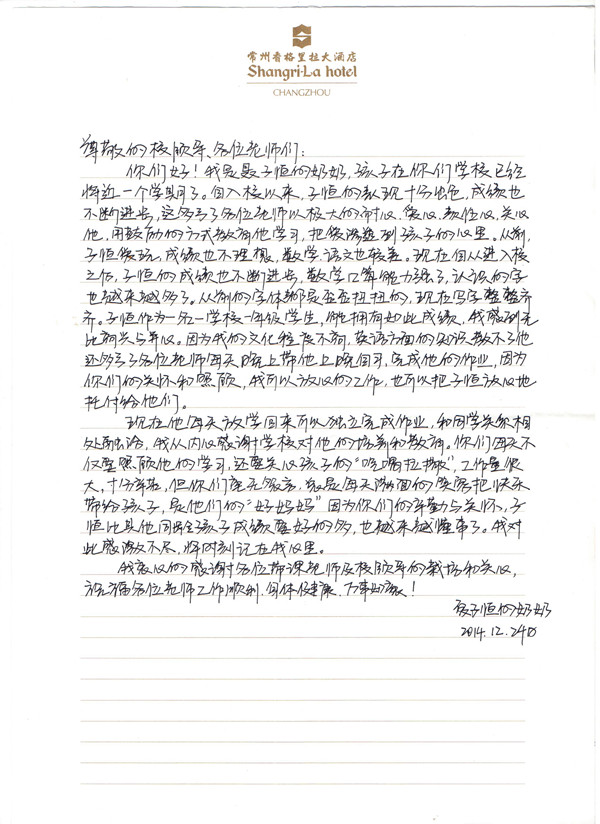 常州香格里拉大酒店
Shangri-La hotel
CHANGZHOU
尊敬的校领导、各位老师们：
你们好！我是子恒的奶奶，孩子在你们学校已经
将近一个学期了。自入校以来，子恒的表现十分出色，成绩也
不断进步，这多亏了各位老师以极大的耐心、爱心、责任心、关心
他，用鼓励的方式教育他学习，把爱渗透到孩子的心里。从前，
子恒爱玩，成绩也不理想，数学语文也较差。现在自从进入校
之后，子恒的成绩也不断进步，数学口算能力强了，认识的字
也越来越多了。从前的字体都是歪歪扭扭的，现在写字整整齐
齐。子恒作为一名一学校一年级学生，能拥有如此成绩，我感到无
比高兴与开心。因为我的文化程度不高，英语方面的知识教不了他
还多亏了各位老师每天晚上带他上晚自习，完成他的作业，因为
你们的关怀和照顾，我可以放心的工作，也可以把子恒放心地
托付给他们。
现在他每天放学回来可以独立完成作业，和同学关系相
处融洽，我从内心感谢学校对他的培养和教育。你们每天不
仅要照顾他的学习，还要关心孩子的“吃喝拉撒”，工作量很
大，十分辛苦，但你们毫无怨言，总是每天满面的笑容把快乐
带给孩子，是他们的“好妈妈”因为你们的辛勤与关怀，子
恒比其他同龄孩子成绩要好的多，也越来越懂事了。我对
此感激不尽，将时刻记在我心里。
我衷心的感谢各位带课老师及校领导的栽培和关心，
祝福各位老师工作顺利，身体健康，万事如意！
子恒的奶奶
2014.12.24日